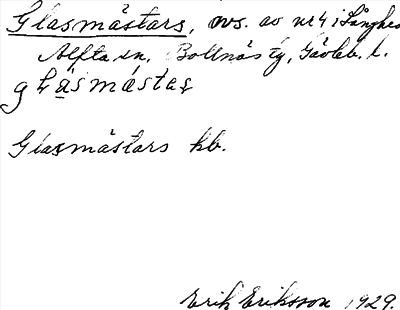 Glasmästars, ws. av nr 4 i Långhed
Alfta sn, Bollnäs tg, Gävleb. l.
Glasmästars kb.
Erik Eriksson 1929.